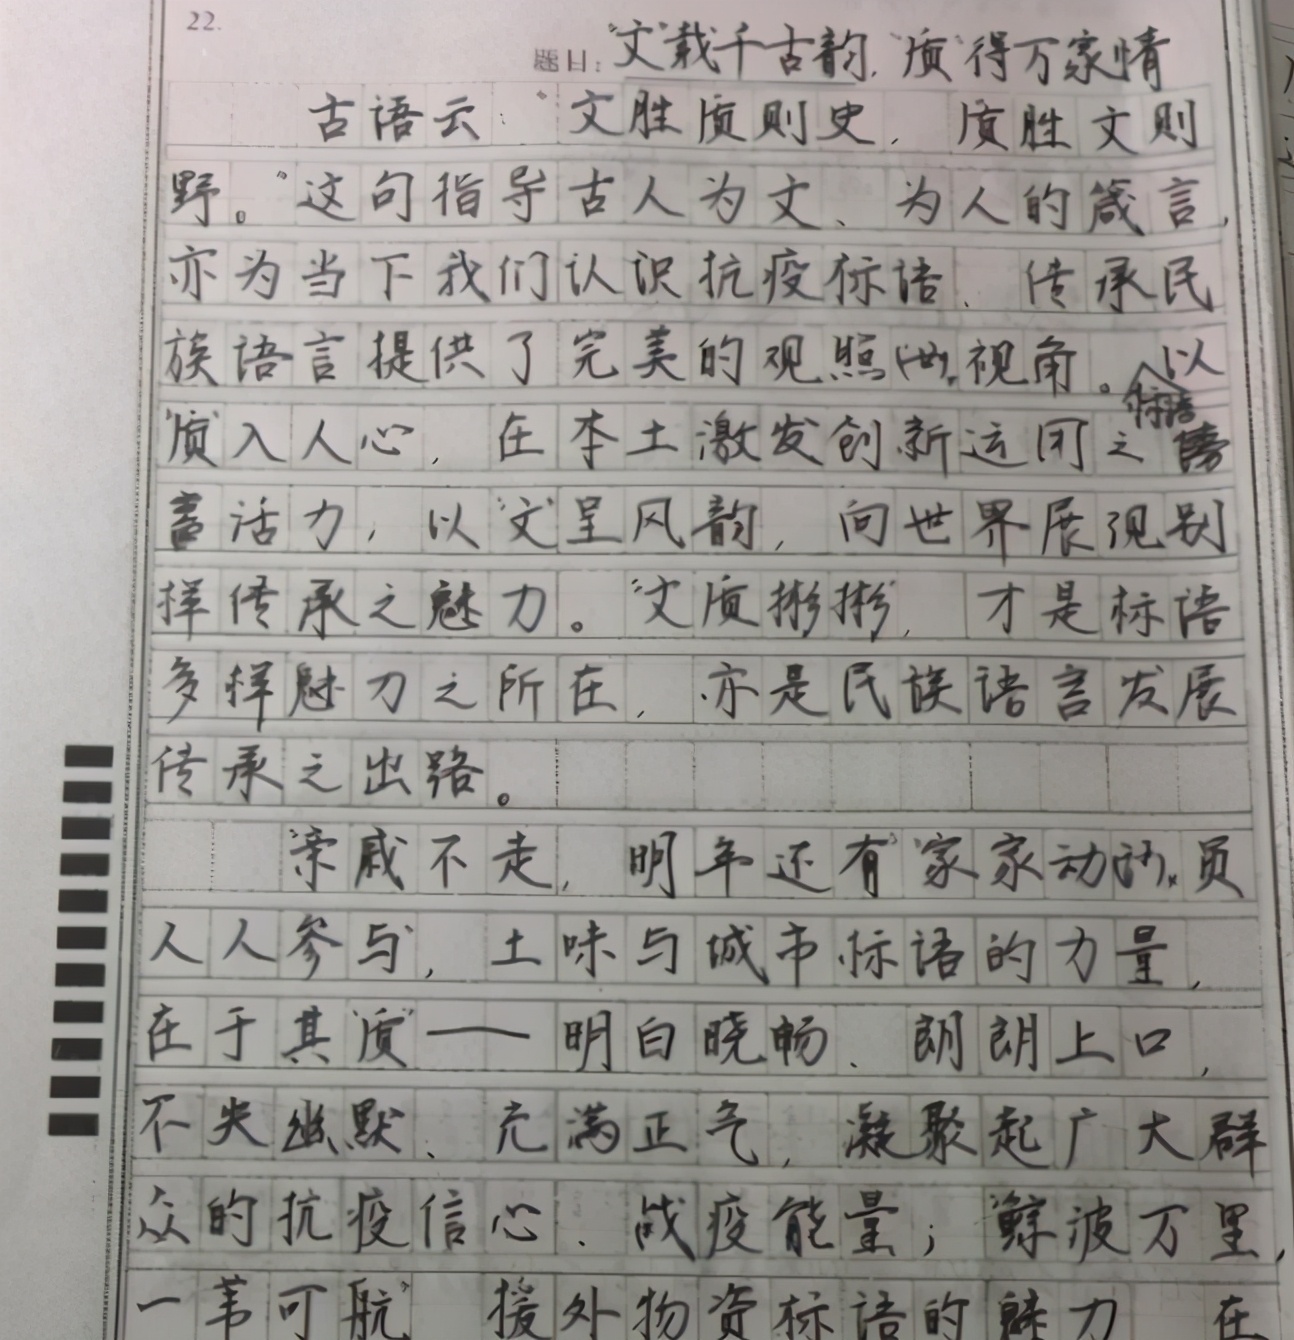 22.
题目："文"载千古韵，"质"得万家情
古语云："文胜质则史，质胜文则
野。"这句指导古人为文、为人的箴言，
亦为当下我们认识抗疫标语、传承民
族语言提供了完美的观照视角。以
标语
"质"入人心，在本土激发创新运团之
活力，以"文"呈风韵，向世界展现别
样传承之魅力。"文质彬彬，才是标语
多样魅力之所在，亦是民族语言发展
传承之出路。
"亲戚不走，明年还有""家家动员
人人参与"，土味与城市标语的力量，
在于其"质"——明白晓畅、朗朗上口，
不失幽默、充满正气，凝聚起广大群
众的抗疫信心、战疫能量；"鲸波万里，
一苇可航"援外物资标语的魅力 在